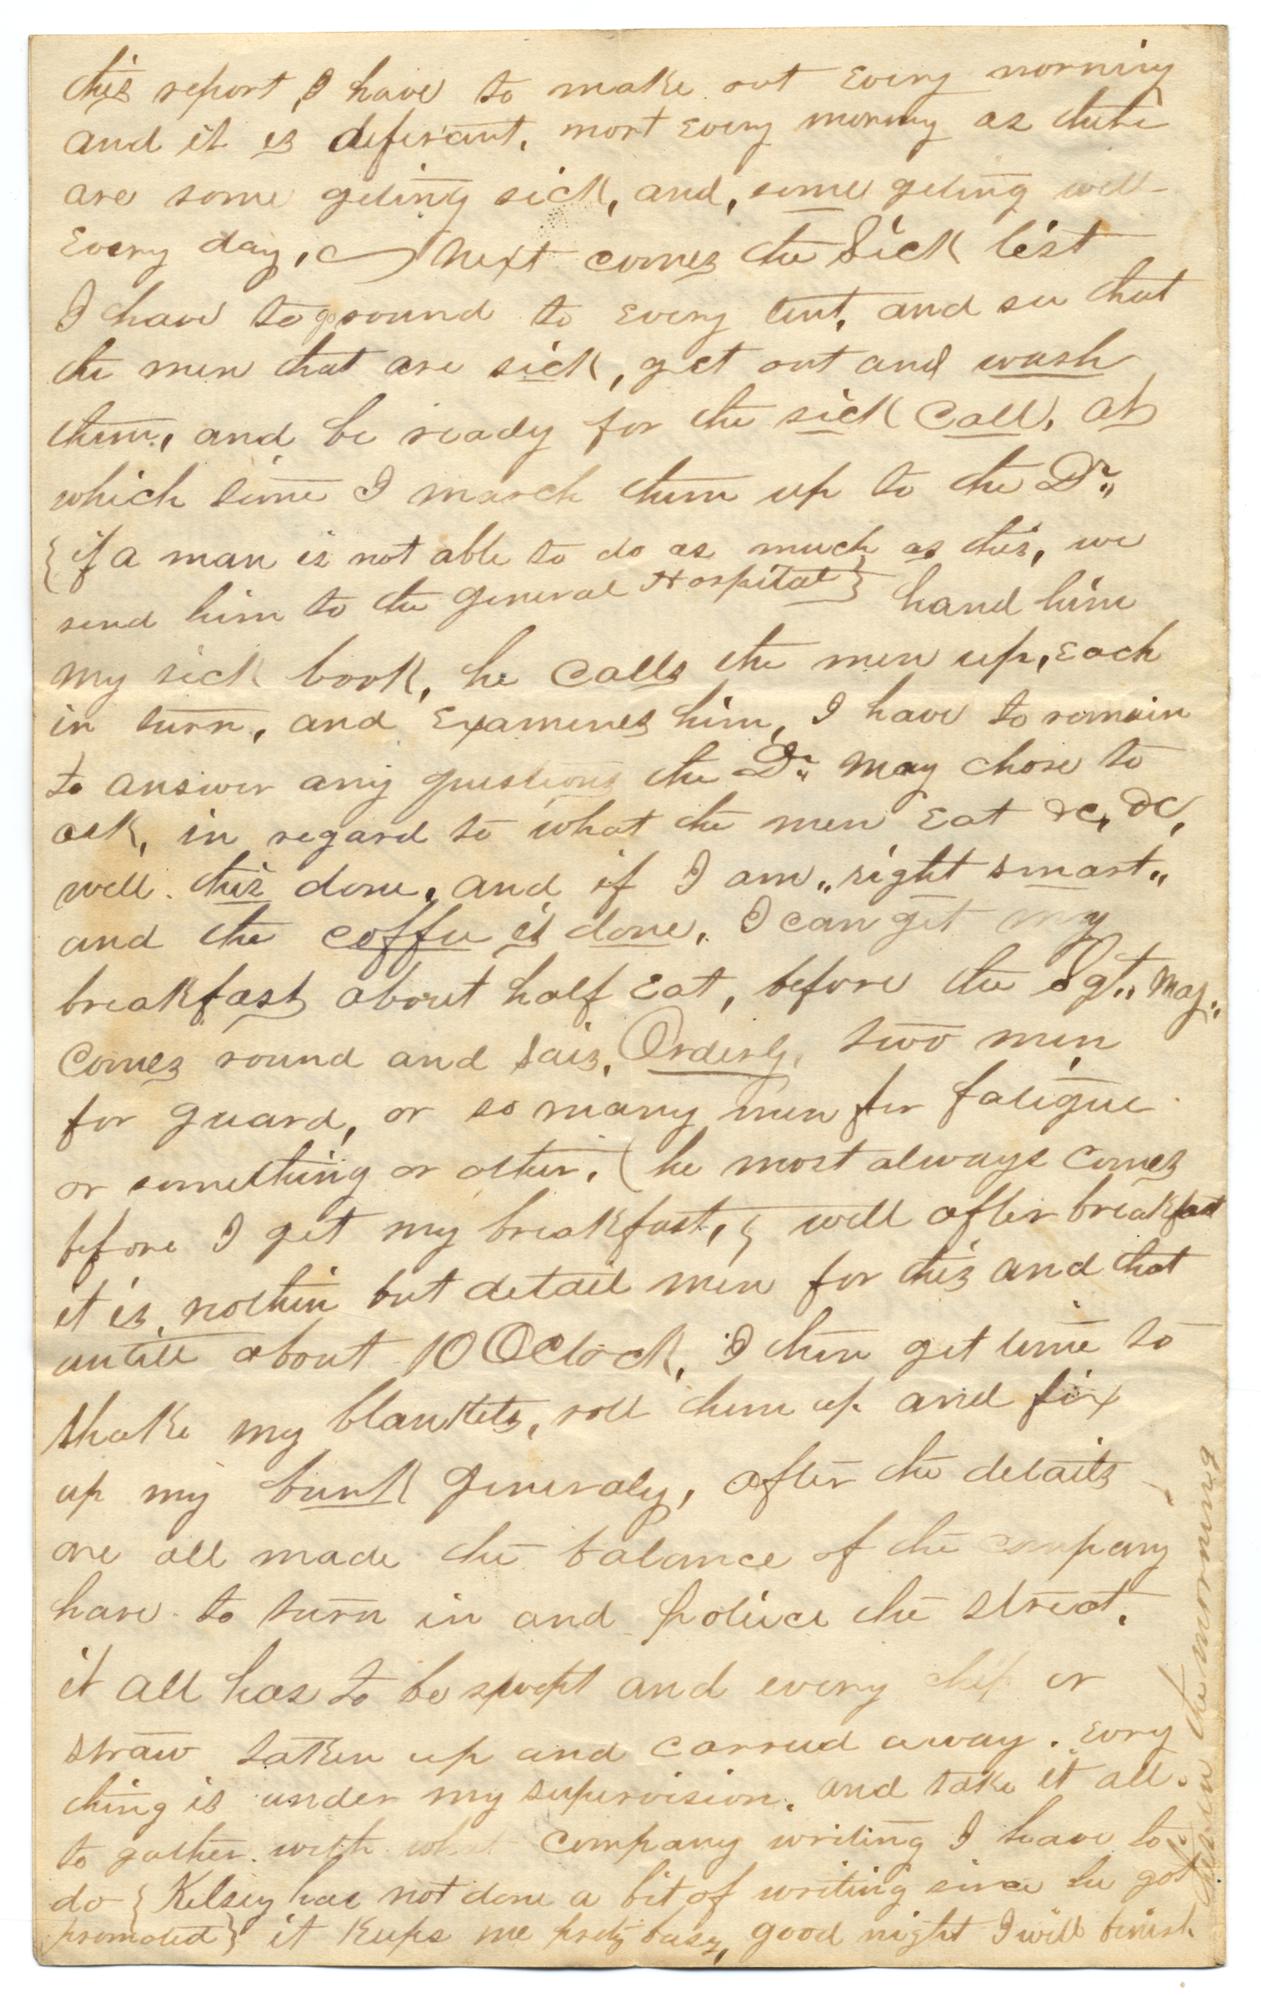 this report, I have to make out Every morning
and it is diferant, most Every morning as there
are some geting sick, and, some geting well
Every day, next comes the Sick list
I have to go round to Every tent, and see that
the men that are sick, get out and wash
them, and be ready for the sick Call, at
which time I march them up to the Dr"
{if a man is not able to do as much as this, we
send him to the general Hospital} hand him
my sick book, he Calls the men up, Each
in turn, and Examines him, I have to remain
to answer any questions the Dr" may chose to
ask, in regard to what the men Eat &c, &c,
well this done, and if I am "right smart"
and the coffee is done, I can get my
breakfast about half Eat, before the Sgt" Maj"
Comes round and sais, Orderly, two men
for guard, or so many men for fatigue
or something or other, (he most always Comes
before I get my breakfast,} well after breakfast
it is nothin but detail men for this and that
untill about 10 OClock, I then get time to
shake my blankets, roll them up and fix
up my bunk generaly, after the details
are all made the balance of the company
have to turn in and police the street.
it all has to be swept and every chip or
straw taken up and carried away. Evry
thing is under my supervision. and take it all
to gather with what Company writing I have to
do {Kelsey has not done a bit of writing since he got
promoted} it Keeps me prety busy, good night I will finish
this in the morning